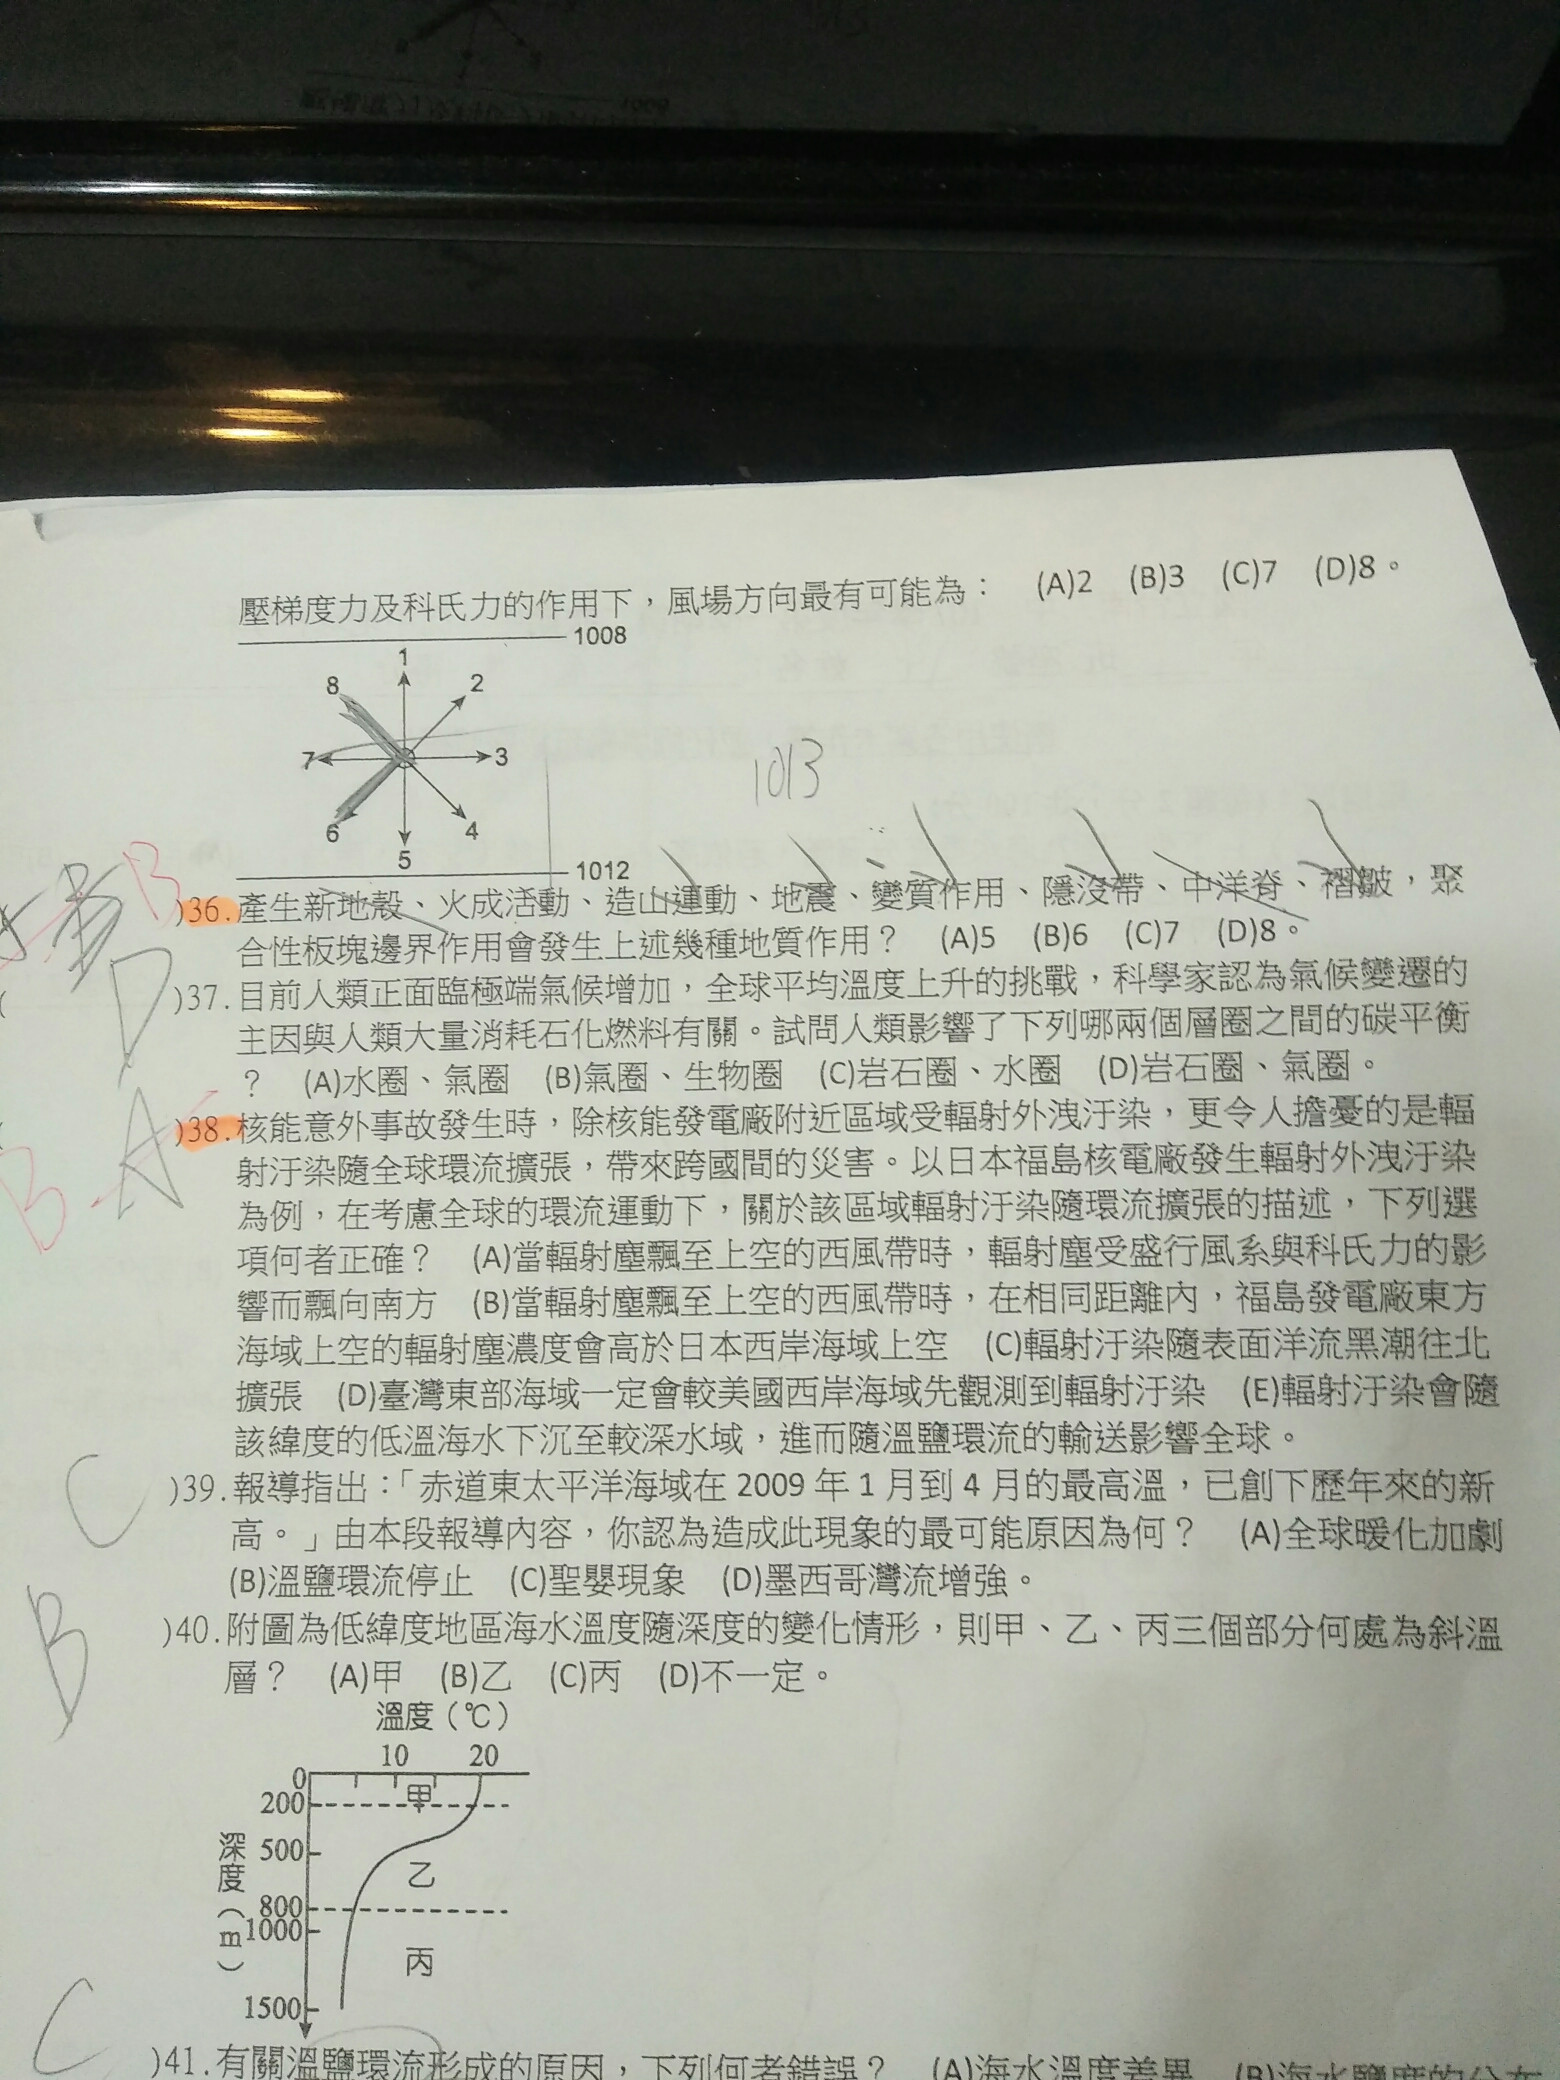 壓梯度力及科氏力的作用下，風場方向最有可能為： (A)2 (B)3 (C)7 (D)8。
1008
1
8 2
7 3
1013
6 4
5
1012
B
)36.產生新地殼、火成活動、造山運動、地震、變質作用、隱沒帶、中洋脊、褶皺，聚
合性板塊邊界作用會發生上述幾種地質作用？ (A)5 (B)6 (C)7 (D)8。
D
)37.目前人類正面臨極端氣候增加，全球平均溫度上升的挑戰，科學家認為氣候變遷的
主因與人類大量消耗石化燃料有關。試問人類影響了下列哪兩個層圈之間的碳平衡
？ (A)水圈、氣圈 (B)氣圈、生物圈 (C)岩石圈、水圈 (D)岩石圈、氣圈。
B A
)38.核能意外事故發生時，除核能發電廠附近區域受輻射外洩汙染，更令人擔憂的是輻
射汙染隨全球環流擴張，帶來跨國間的災害。以日本福島核電廠發生輻射外洩汙染
為例，在考慮全球的環流運動下，關於該區域輻射汙染隨環流擴張的描述，下列選
項何者正確？ (A)當輻射塵飄至上空的西風帶時，輻射塵受盛行風系與科氏力的影
響而飄向南方 (B)當輻射塵飄至上空的西風帶時，在相同距離內，福島發電廠東方
海域上空的輻射塵濃度會高於日本西岸海域上空 (C)輻射汙染隨表面洋流黑潮往北
擴張 (D)臺灣東部海域一定會較美國西岸海域先觀測到輻射汙染 (E)輻射汙染會隨
該緯度的低溫海水下沉至較深水域，進而隨溫鹽環流的輸送影響全球。
C
)39.報導指出：「赤道東太平洋海域在 2009 年 1 月到 4 月的最高溫，已創下歷年來的新
高。」由本段報導內容，你認為造成此現象的最可能原因為何？ (A)全球暖化加劇
(B)溫鹽環流停止 (C)聖嬰現象 (D)墨西哥灣流增強。
B
)40.附圖為低緯度地區海水溫度隨深度的變化情形，則甲、乙、丙三個部分何處為斜溫
層？ (A)甲 (B)乙 (C)丙 (D)不一定。
溫度（℃）
10 20
0
甲
200
深度（m）
500
乙
800
1000
丙
1500
C
)41.有關溫鹽環流形成的原因，下列何者錯誤？ (A)海水溫度差異 (B)海水鹽度的分布